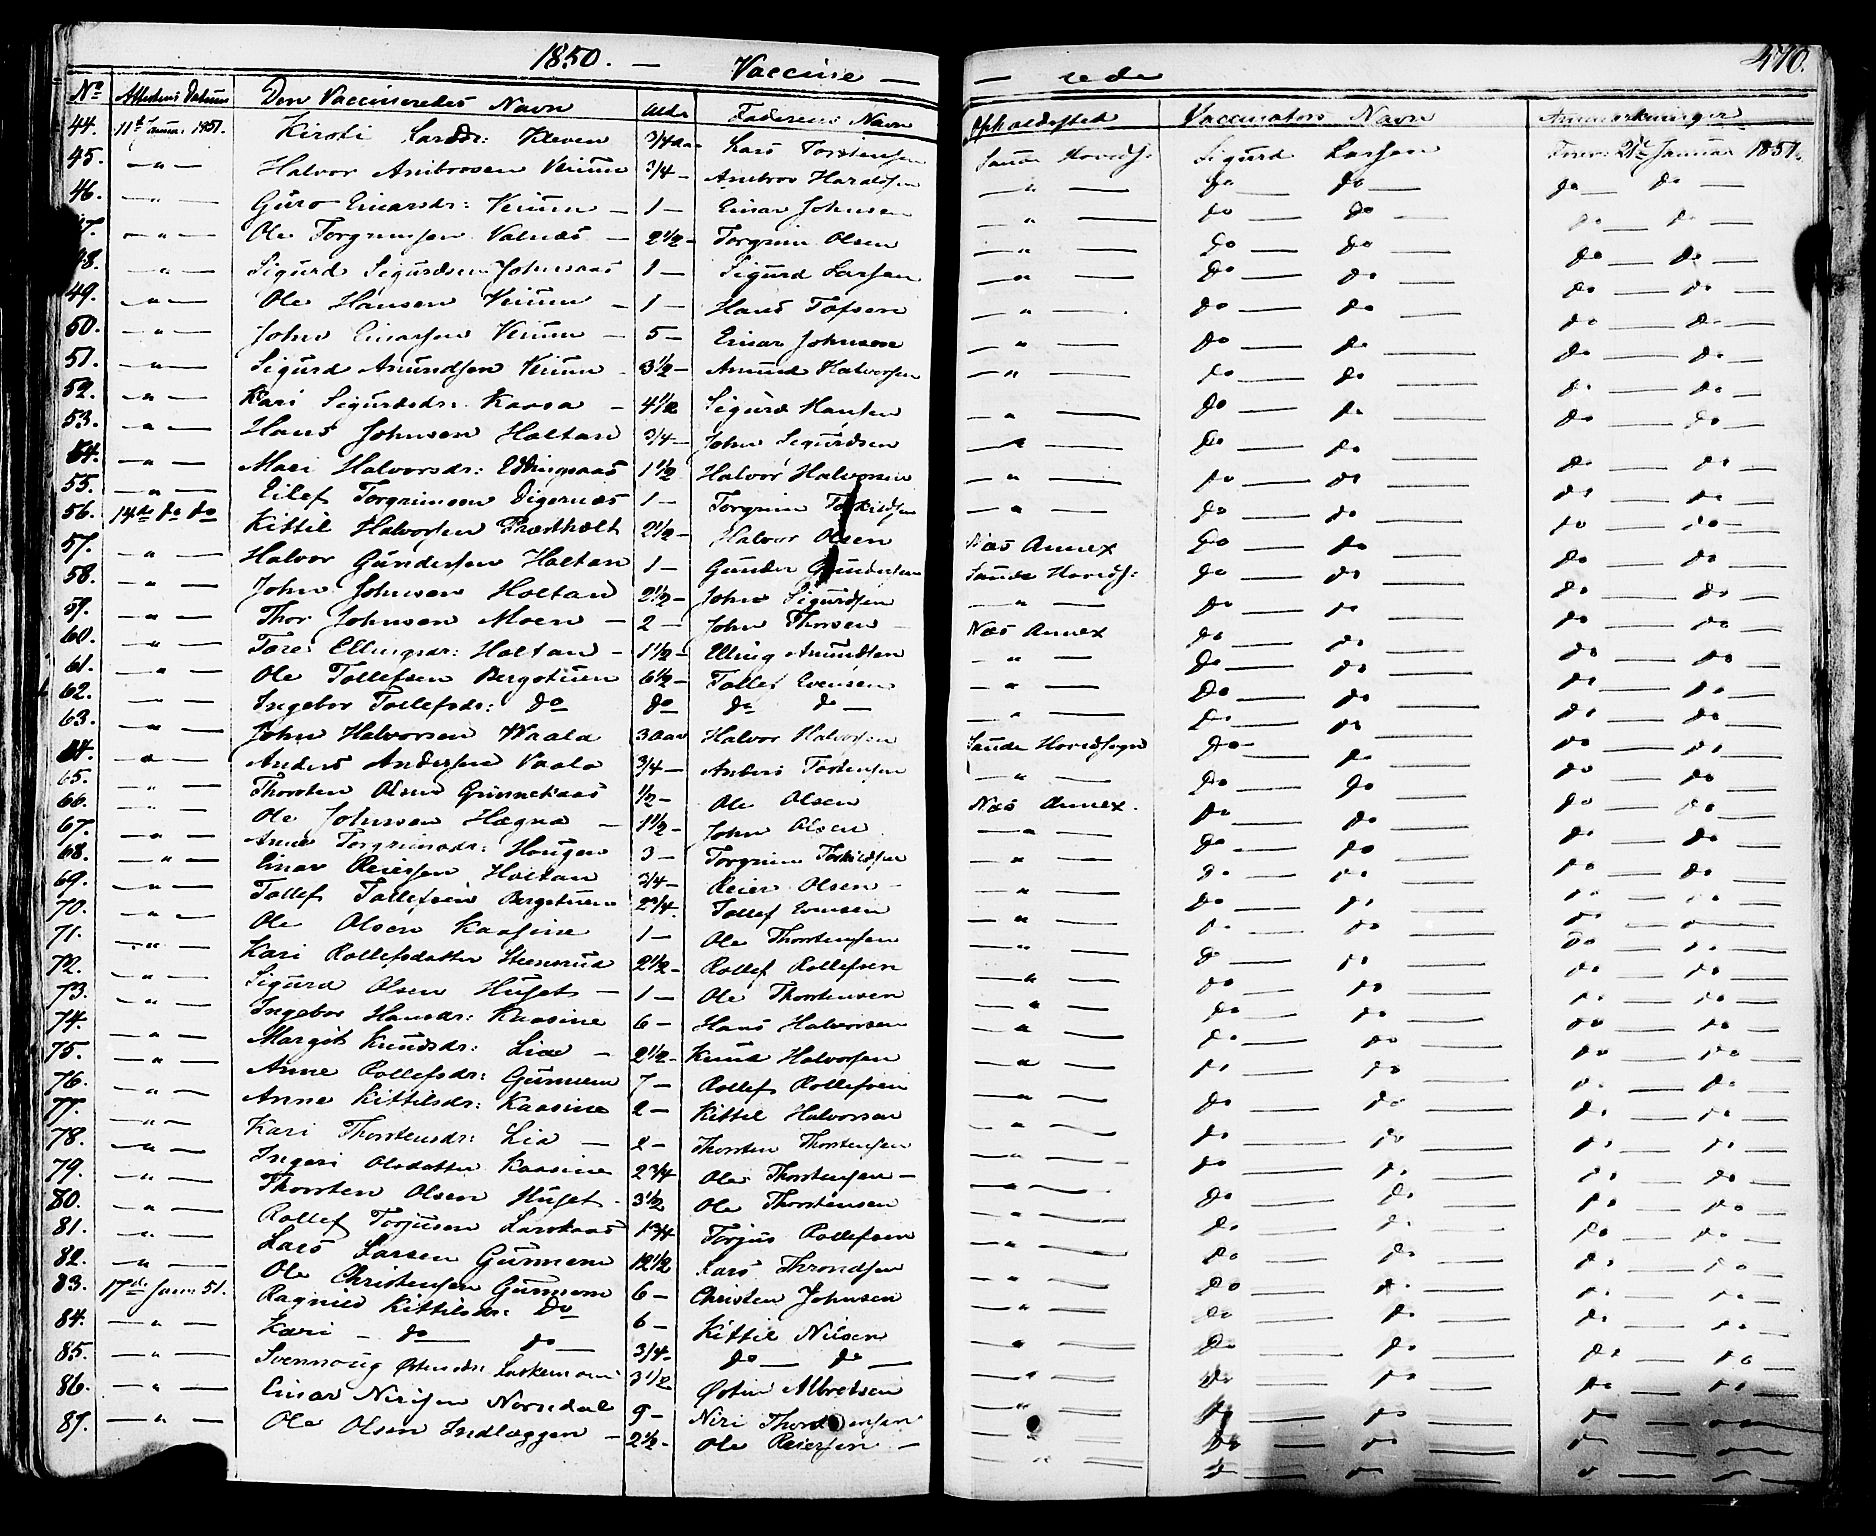 1850. — Vaccine — — rede 470.
No Attestens Datum Den Vaccineredes Navn Alder Faderens Navn Opholdssted Vaccinators Navn Anmærkninger
44. 11te Januar 1851. Kirsti Larsdr: Kleven 3/4 aar Lars Torstensen Saude Hoveds: Sigurd Larsen 21de Januar 1851.
45. — " — Halvor Ambrosen Verium 3/4 — Ambros Haraldsen — " — do — do — do — do —
46. — " — Guro Einarsdr: Verium — 1 — Einar Johnsen — " — do — do — do — do —
47. — " — Ole Torgrimsen Valnæs — 2 1/2 — Torgrim Olsen — " — do — do — do — do —
48. — " — Sigurd Sigurdsen Johnsaas 1 — Sigurd Larsen — " — do — do — do — do —
49. — " — Ole Hansen Verium — 1 — Hans Tofsen — " — do — do — do — do —
50. — " — John Einarsen Verium — 5 — Einar Johnsen — " — do — do — do — do —
51. — " — Sigurd Amundsen Verium 3 1/2 — Amund Halvorsen — " — do — do — do — do —
52. — " — Kari Sigurdsdr: Kaasa — 4 1/2 Sigurd Hansen — " — do — do — do — do —
53. — " — Hans Johnsen Holtan 3/4 — John Sigurdsen — " — do — do — do — do —
54. — " — Mari Halvorsdr: 1 1/2 Halvor Halvorsen — " — do — do — do — do —
55. — " — Eilef Torgrimsen Digernæs 1 — Torgrim Torkildsen — " — do — do — do — do —
56. 14de do do Kittil Halvorsen 2 1/2 — Halvor Olsen Næs Annex do — do — do — do —
57. — " — Halvor Gundersen Holtan 1 — Gunder Gundersen Saude Hoveds: do — do — do — do —
58. — " — John Johnsen Holtan 2 1/2 — John Sigurdsen — " — do — do — do — do —
59. — " — Thor Johnsen Moen — 2 — John Thorsen Næs Annex do — do — do — do —
60. — " — Tore Ellingsdr: Holtan — 1 1/2 — Elling Amundsen — " — do — do — do — do —
61. — " — Ole Tollefsen Bergstuen 6 1/2 — Tollef Evensen — " — do — do — do — do —
62. — " — Ingebor Tollefsdr: do do do do — — " — do — do — do — do —
63. — " — John Halvorsen Waala 3 aar Halvor Halvorsen Saude Hovedsogn do — do — do — do —
64. — " — Anders Andersen Vaala 3/4 — Anders Torstensen — " — do — do — do — do —
65. — " — Thorsten Olsen Grinnekaas 1/2 — Ole Olsen Næs Annex. do — do — do — do —
66. — " — Ole Johnsen Hægna — 1 1/2 — John Olsen — " — do — do — do — do —
67. — " — Anne Torgrimsdr: Haugen 3 — Torgrim Torkildsen — " — do — do — do — do —
68. — " — Einar Reiersen Holtan 3/4 — Reier Olsen — — " — do — do — do — do —
69. — " — Tollef Tollefsen Bergstuen 2 3/4 Tollef Evensen — " — do — do — do — do —
70. — " — Ole Olsen Kaasine 1 — Ole Thorstensen — " — do — do — do — do —
71. — " — Kari Rollefsdatter Steensrud 2 1/2 — Rollef Rollefsen — " — do — do — do — do —
72. — " — Sigurd Olsen Huset — 1 — Ole Thorstensen — " — do — do — do — do —
73. — " — Ingebor Hansdr: Kaasine 6 — Hans Halvorsen — " — do — do — do — do —
74. — " — Margit Knudsdr: Lia — 2 1/2 — Knud Halvorsen — " — do — do — do — do —
75. — " — Anne Rollefsdr: Gunnem 7 — Rollef Rollefsen — " — do — do — do — do —
76. — " — Anne Kittilsdr: Kaasine 2 — Kittil Halvorsen — " — do — do — do — do —
77. — " — Kari Thorstensdr: Lia — 2 — Thorsten Thorstensen — " — do — do — do — do —
78. — " — Ingeri Olsdatter Kaasine 2 3/4 Ole Thorstensen — — " — do — do — do — do —
79. — " — Thorsten Olsen Huset — 3 1/2 Ole Thorstensen — " — do — do — do — do —
80. — " — Rollef Torjusen 1 3/4 Torjus Rollefsen — " — do — do — do — do —
81. — " — Lars Larsen Gunnem 12 1/2 Lars Throndsen — " — do — do — do — do —
82. — " — Ole Christensen Gunnem 6 — Christen Johnsen — " — do — do — do — do —
83. 17de Janr 51. Ragnild Kittilsdr: do 6 — Kittil Nilsen — " — do — do — do — do —
84. — " — Kari — do — do — 3/4 — do — do — — " — do — do — do — do —
85. — " — Svennoug Østensdr: 3 1/2 Østen Albretsen — " — do — do — do — do —
86. — " — Einar Nirisen Norsdal 9 — Niri — " — do — do — do — do —
87. — " — Ole Olsen Indlæggen — 2 1/2 — Ole Reiersen — — " — do — do — do — do —